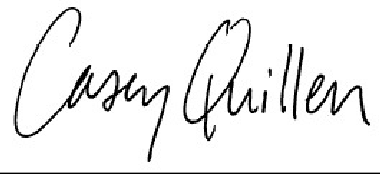 Casey Quillen